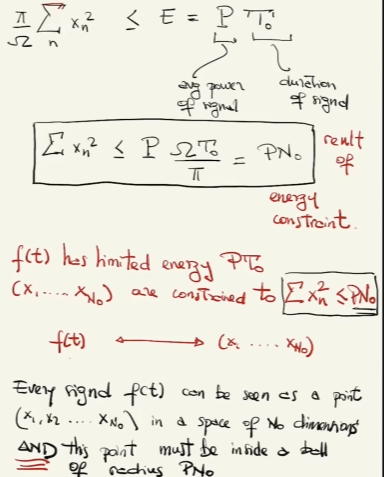 π/Ω Σ_n x_n² ≤ E = P T₀
avg power of signal
duration of signal
Σ x_n² ≤ P ΩT₀/π = PN₀
result of
energy constraint.
f(t) has limited energy PT₀
(x₁ .... x_N₀) are constrained to Σ x_n² ≤ PN₀
f(t) ⟷ (x₁ .... x_N₀)
Every signal f(t) can be seen as a point
(x₁, x₂ .... x_N₀) in a space of N₀ dimensions
AND this point must be inside a ball
of radius PN₀